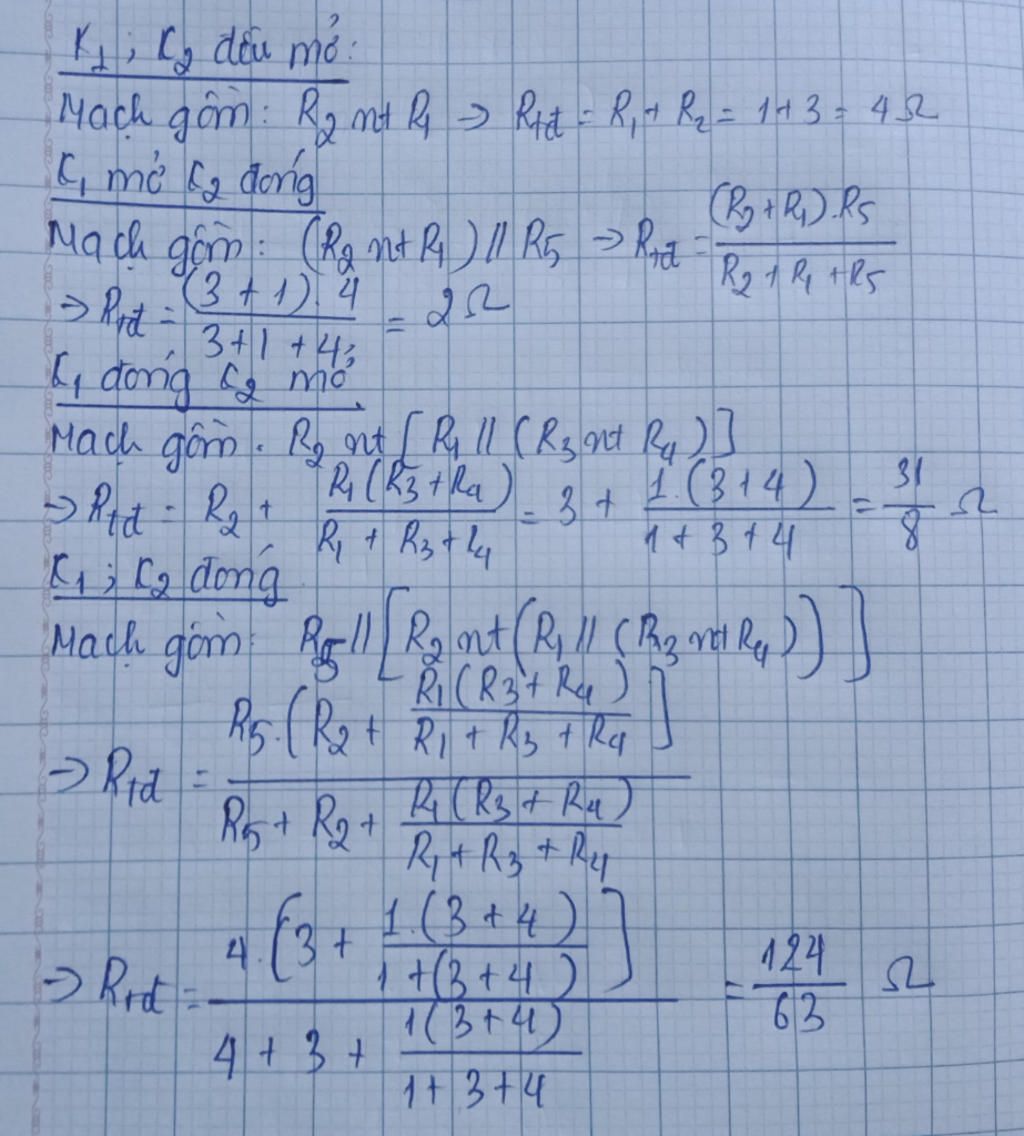 K₁ ; K₂ đều mở:
Mạch gồm: R₂ nt R₁ → Rtđ = R₁ + R₂ = 1 + 3 = 4 Ω
K₁ mở K₂ đóng
Mạch gồm: (R₂ nt R₁) // R₅ → Rtđ = (R₂ + R₁).R₅ / (R₂ + R₁ + R₅)
→ Rtđ = (3 + 1).4 / (3 + 1 + 4) = 2 Ω
K₁ đóng K₂ mở
Mạch gồm. R₂ nt [R₁ // (R₃ nt R₄)]
→ Rtđ = R₂ + R₁(R₃ + R₄) / (R₁ + R₃ + R₄) = 3 + 1.(3 + 4) / (1 + 3 + 4) = 31/8 Ω
K₁ ; K₂ đóng
Mạch gồm: R₅ // [R₂ nt (R₁ // (R₃ nt R₄))]
→ Rtđ = R₅.(R₂ + R₁(R₃ + R₄) / (R₁ + R₃ + R₄)] / (R₅ + R₂ + R₁(R₃ + R₄) / (R₁ + R₃ + R₄))
→ Rtđ = 4.[3 + 1.(3 + 4) / (1 + (3 + 4))] / (4 + 3 + 1(3 + 4) / (1 + 3 + 4)) = 124/63 Ω